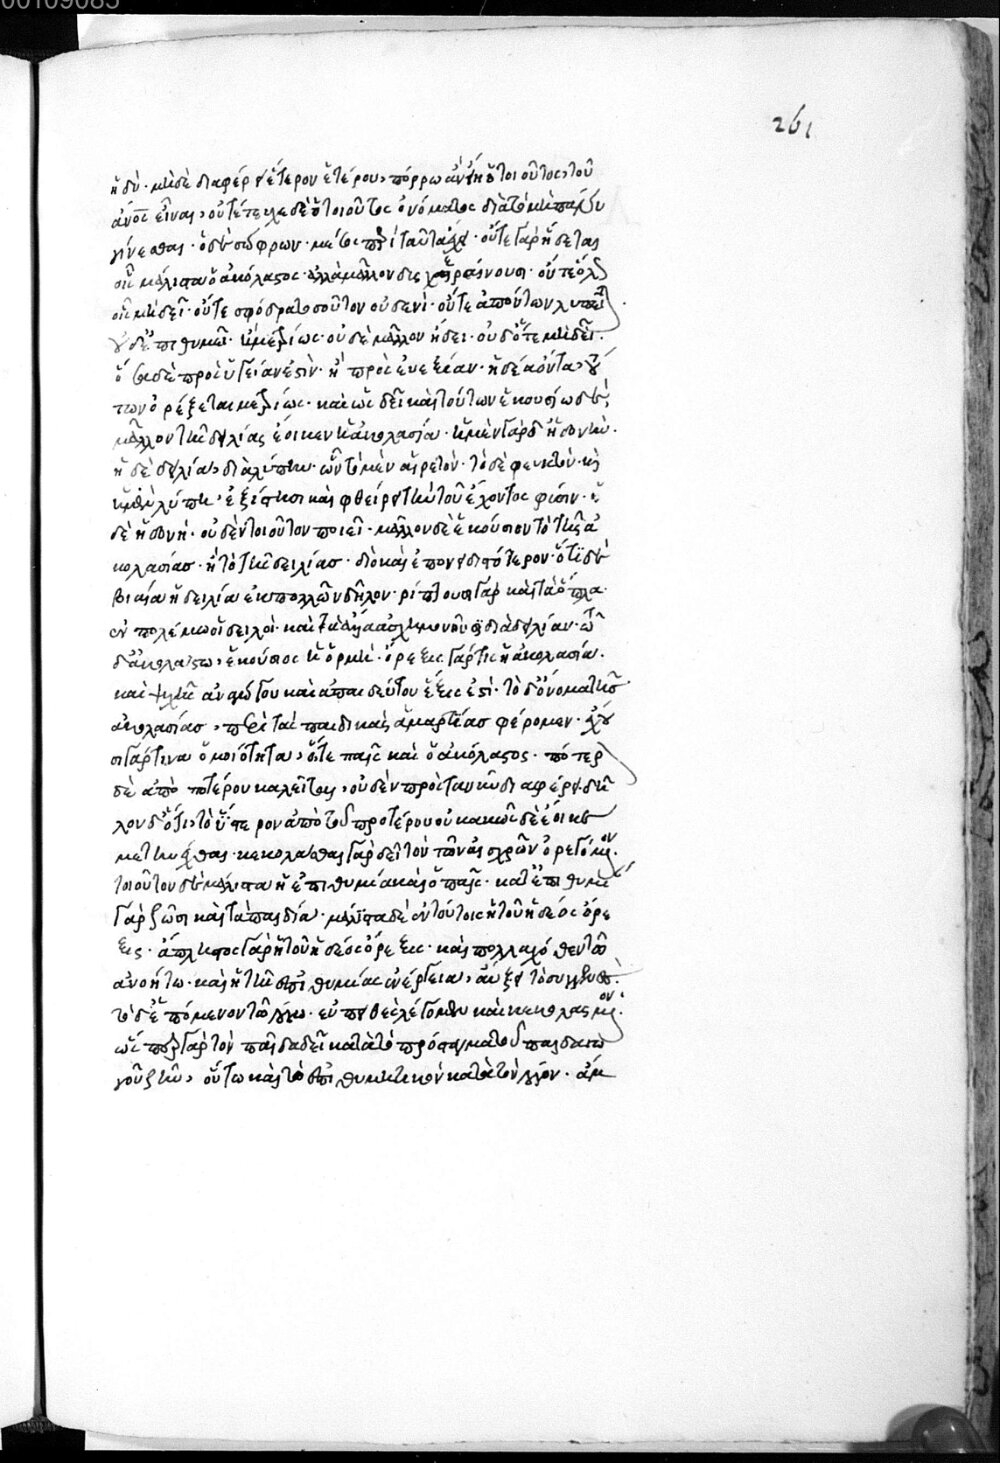 261
ἡδὺ· μηδὲ διαφέρει ἕτερον ἑτέρου, πόρρω ἂν εἴη ὁ τοιοῦτος, τοῦ
ἀνοῦ εἶναι, οὐ τέτευχε δὲ ὁ τοιοῦτος ὀνόματος διὰ τὸ μὴ πάνυ
γίνεσθαι· ὁ δὲ σώφρων· μέσως περὶ ταῦτα ἔχει· οὔτε γὰρ ἥδεται
οἷς μάλιστα ὁ ἀκόλαστος· ἀλλὰ μᾶλλον δυσχεραίνουσι· οὔτε ὅλως
οἷς μὴ δεῖ· οὔτε σφόδρα τοσοῦτον οὐδενὶ· οὔτε ἀπόντων λυπεῖται
οὐδὲ ἐπιθυμεῖ· ἢ μετρίως· οὐδὲ μᾶλλον ἢ δεῖ· οὐδ' ὅτε μὴ δεῖ·
ὅσα δὲ πρὸς ὑγείαν ἐστὶν· ἢ πρὸς εὐεξίαν· ἡδέα ὄντα, τού
των ὀρέξεται μετρίως· καὶ ὡς δεῖ
μᾶλλον τῆς δειλίας ἔοικεν ἡ ἀκολασία· ἡ μὲν γὰρ δι' ἡδονὴν·
ἡ δὲ δειλία, διὰ λύπην· ὧν τὸ μὲν αἱρετὸν· τὸ δὲ φευκτὸν· καὶ
ἡ μὲν λύπη· ἐξίστησι καὶ φθείρει τὴν τοῦ ἔχοντος φύσιν· ἡ
δὲ ἡδονὴ· οὐδὲν τοιοῦτον ποιεῖ· μᾶλλον δὲ ἑκούσιον τὸ τῆς ἀ
κολασίασ· ἢ τὸ τῆς δειλίασ· διὸ καὶ ἐπονειδιστότερον· ὅτι δὲ
βιαία ἡ δειλία ἐκ πολλῶν δῆλον· ῥίπτουσι γὰρ καὶ τὰ ὅπλα·
ἐν πολέμῳ οἱ δειλοὶ· καὶ τὰ ἄλλα ἀσχημονοῦσι διὰ δειλίαν· τῷ
δ' ἀκολάστῳ, ἑκούσιος ἡ ὁρμὴ· ὄρεξις γάρ τις ἡ ἀκολασία·
καὶ ψυχῆς ἀναγώγου καὶ ἀπαιδεύτου ἕξις ἐστὶ· τὸ δ' ὄνομα τῆς
ἀκολασίασ, περὶ τὰς παιδικὰς ἁμαρτίασ φέρομεν· ἔχου
σι γάρ τινα ὁμοιότητα, ὅ,τε παῖς καὶ ὁ ἀκόλαστος· πότερον
δὲ ἀπὸ ποτέρου καλεῖται, οὐδὲν πρὸς τὰ νῦν διαφέρει· δῆ
λον δ' ὅτι, τὸ ὕστερον ἀπὸ τοῦ προτέρου οὐ κακῶς δὲ ἔοικε
μετηνέχθαι· κεκολάσθαι γὰρ δεῖ τὸν τῶν αἰσχρῶν ὀρεγόμενον·
τοιοῦτον δὲ μάλιστα ἡ ἐπιθυμία καὶ ὁ παῖς· κατ' ἐπιθυμίαν
γὰρ ζῶσι καὶ τὰ παιδία· μάλιστα δὲ ἐν τούτοις ἡ τοῦ ἡδέος ὄρε
ξις· ἄπληστος γὰρ ἡ τοῦ ἡδέος ὄρεξις· καὶ πολλαχόθεν τῷ
ἀνοήτῳ· καὶ ἡ τῆς ἐπιθυμίας ἐνέργεια, αὔξει τὸ συγγενὲς·
τὸ δὲ ἑπόμενον τῷ λόγῳ· εὐπειθὲς λέγομεν καὶ κεκολασμένον·
ὥσπερ γὰρ τὸν παῖδα δεῖ κατὰ τὸ πρόσταγμα τοῦ παιδαγω
γοῦ ζῆν, οὕτω καὶ τὸ ἐπιθυμητικὸν κατὰ τὸν λόγον·